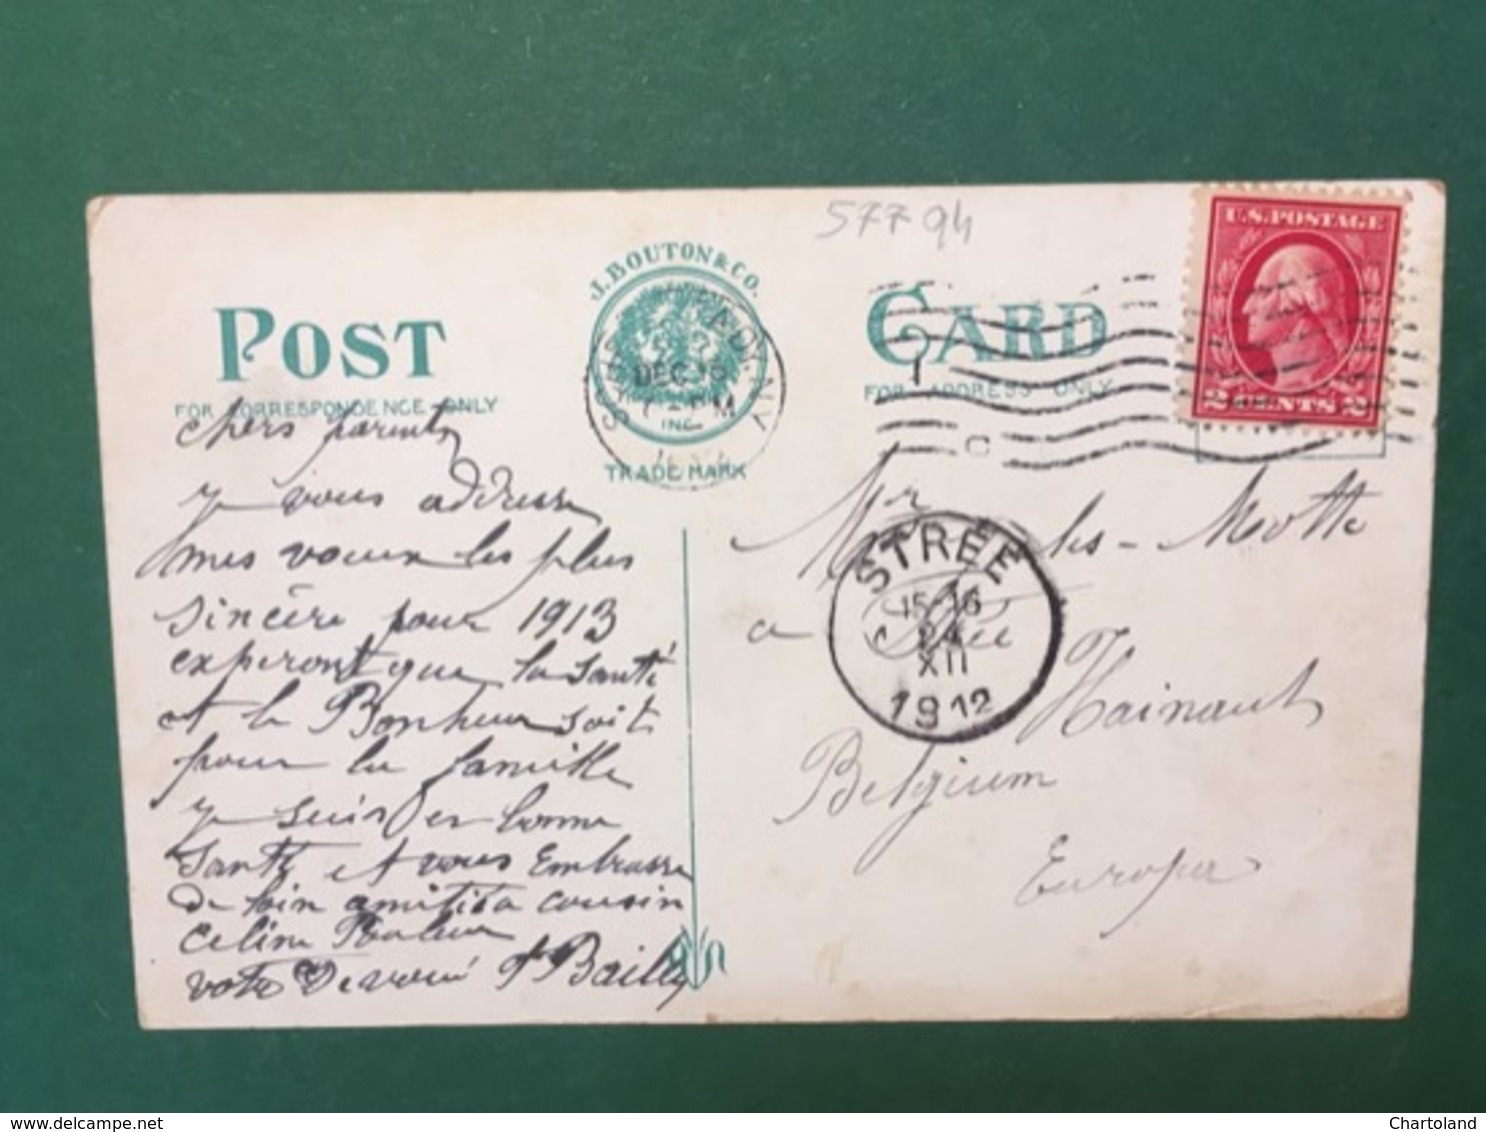 57794
J. BOUTON & CO.
POST
CARD
FOR CORRESPONDENCE ONLY
FOR ADDRESS ONLY
DEC
PM
INC.
TRADE MARK
U.S. POSTAGE
2 CENTS 2
chers parents
je vous adresse
mes voeux les plus
sincère pour 1913
experont que la santé
et le Bonheur soit
pour la famille
je suis en bonne
santé et vous Embrasse
de loin amitié a cousin
Celine
votre Devoué Bailly
Mr Jules - Motte
a Strée
Hainaut
Belgium
Europa
STRÉE
15-16
24
XII
1912
delcampe.net
Chartoland